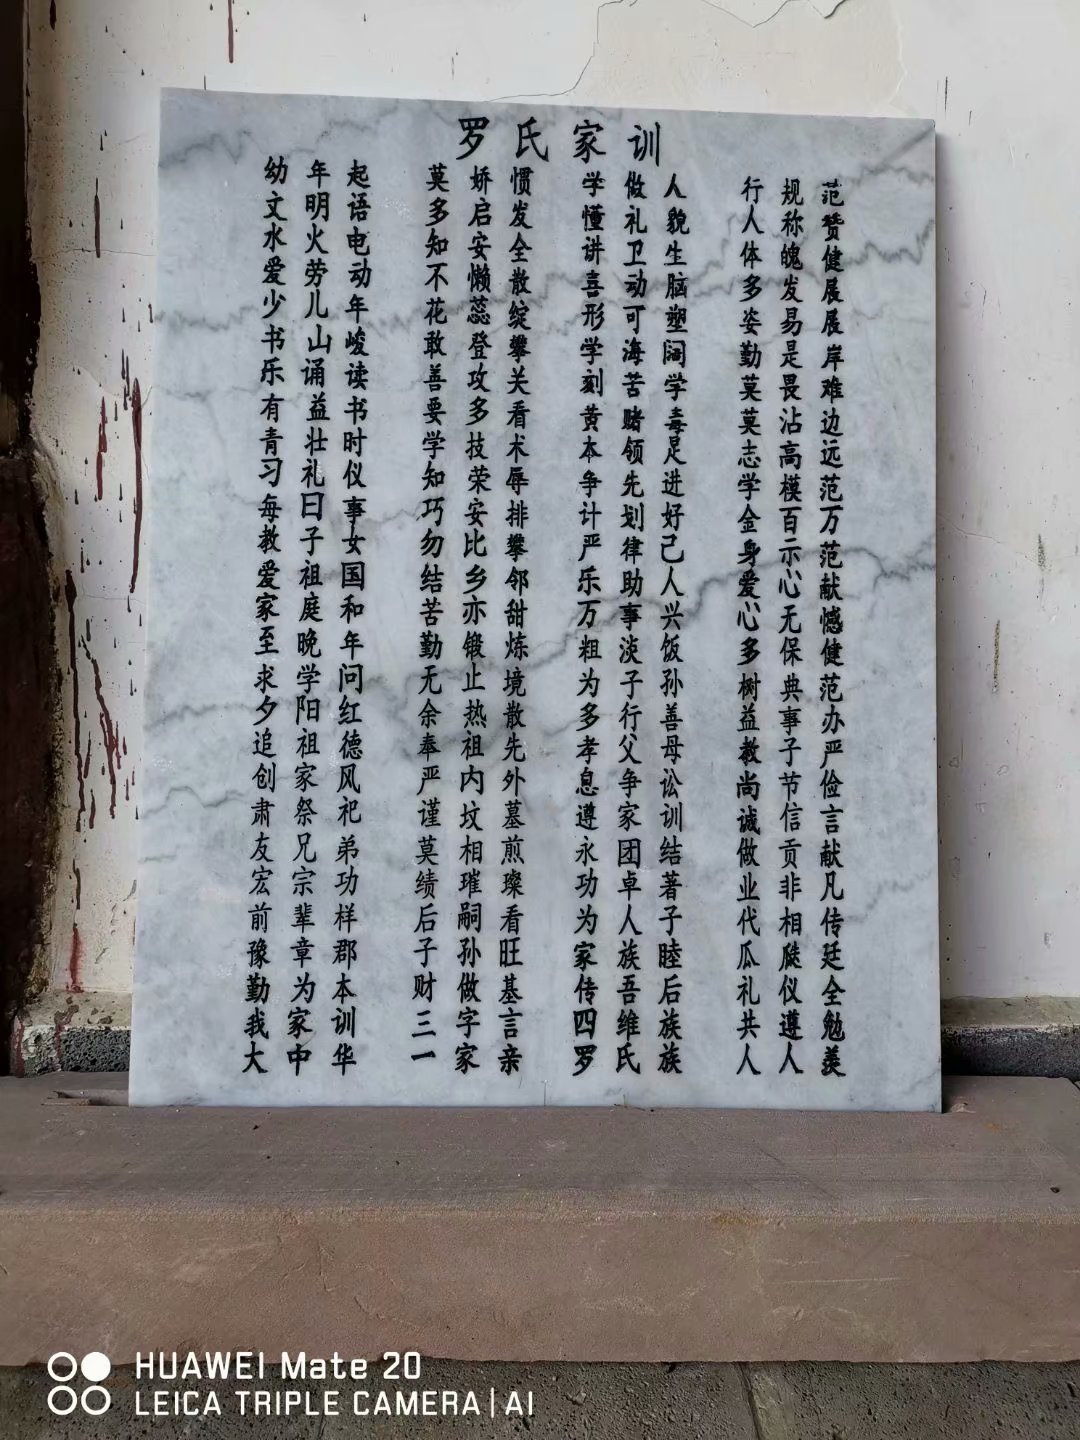 罗氏家训
幼年起
文明语
水火电
爱劳动
少儿年
书山峻
乐诵读
有益书
青壮时
习礼仪
每日事
教子女
爱祖国
家庭和
至晚年
求学问
夕阳红
追祖德
创家风
肃祭祀
友兄弟
宏宗功
前辈样
豫章郡
勤为本
我家训
大中华
莫娇惯
多启发
知安全
不懒散
花蕊绽
敢登攀
善攻关
要多看
学技术
知荣辱
巧安排
勿比攀
结乡邻
苦亦甜
勤锻炼
无止境
余热散
奉祖先
严内外
谨坟墓
莫相煎
绩璀璨
后嗣看
子孙旺
财做基
三字言
一家亲
学做人
懂礼貌
讲卫生
喜动脑
形可塑
学海阔
刻苦学
黄赌毒
本领足
争先进
计划好
严律己
乐助人
万事兴
粗淡饭
为子孙
多行善
孝父母
息争讼
遵家训
永团结
功卓著
为人子
家族睦
传吾后
四维族
罗氏族
行规范
人称赞
体魄健
多发展
姿易展
勤是岸
莫畏难
莫沾边
志高远
学模范
金百万
身示范
爱心献
心无憾
多保健
树典范
益事办
教子严
尚节俭
诚信言
做贡献
业非凡
代相传
瓜瓞延
礼仪全
共遵勉
人人羡
HUAWEI Mate 20
LEICA TRIPLE CAMERA | AI